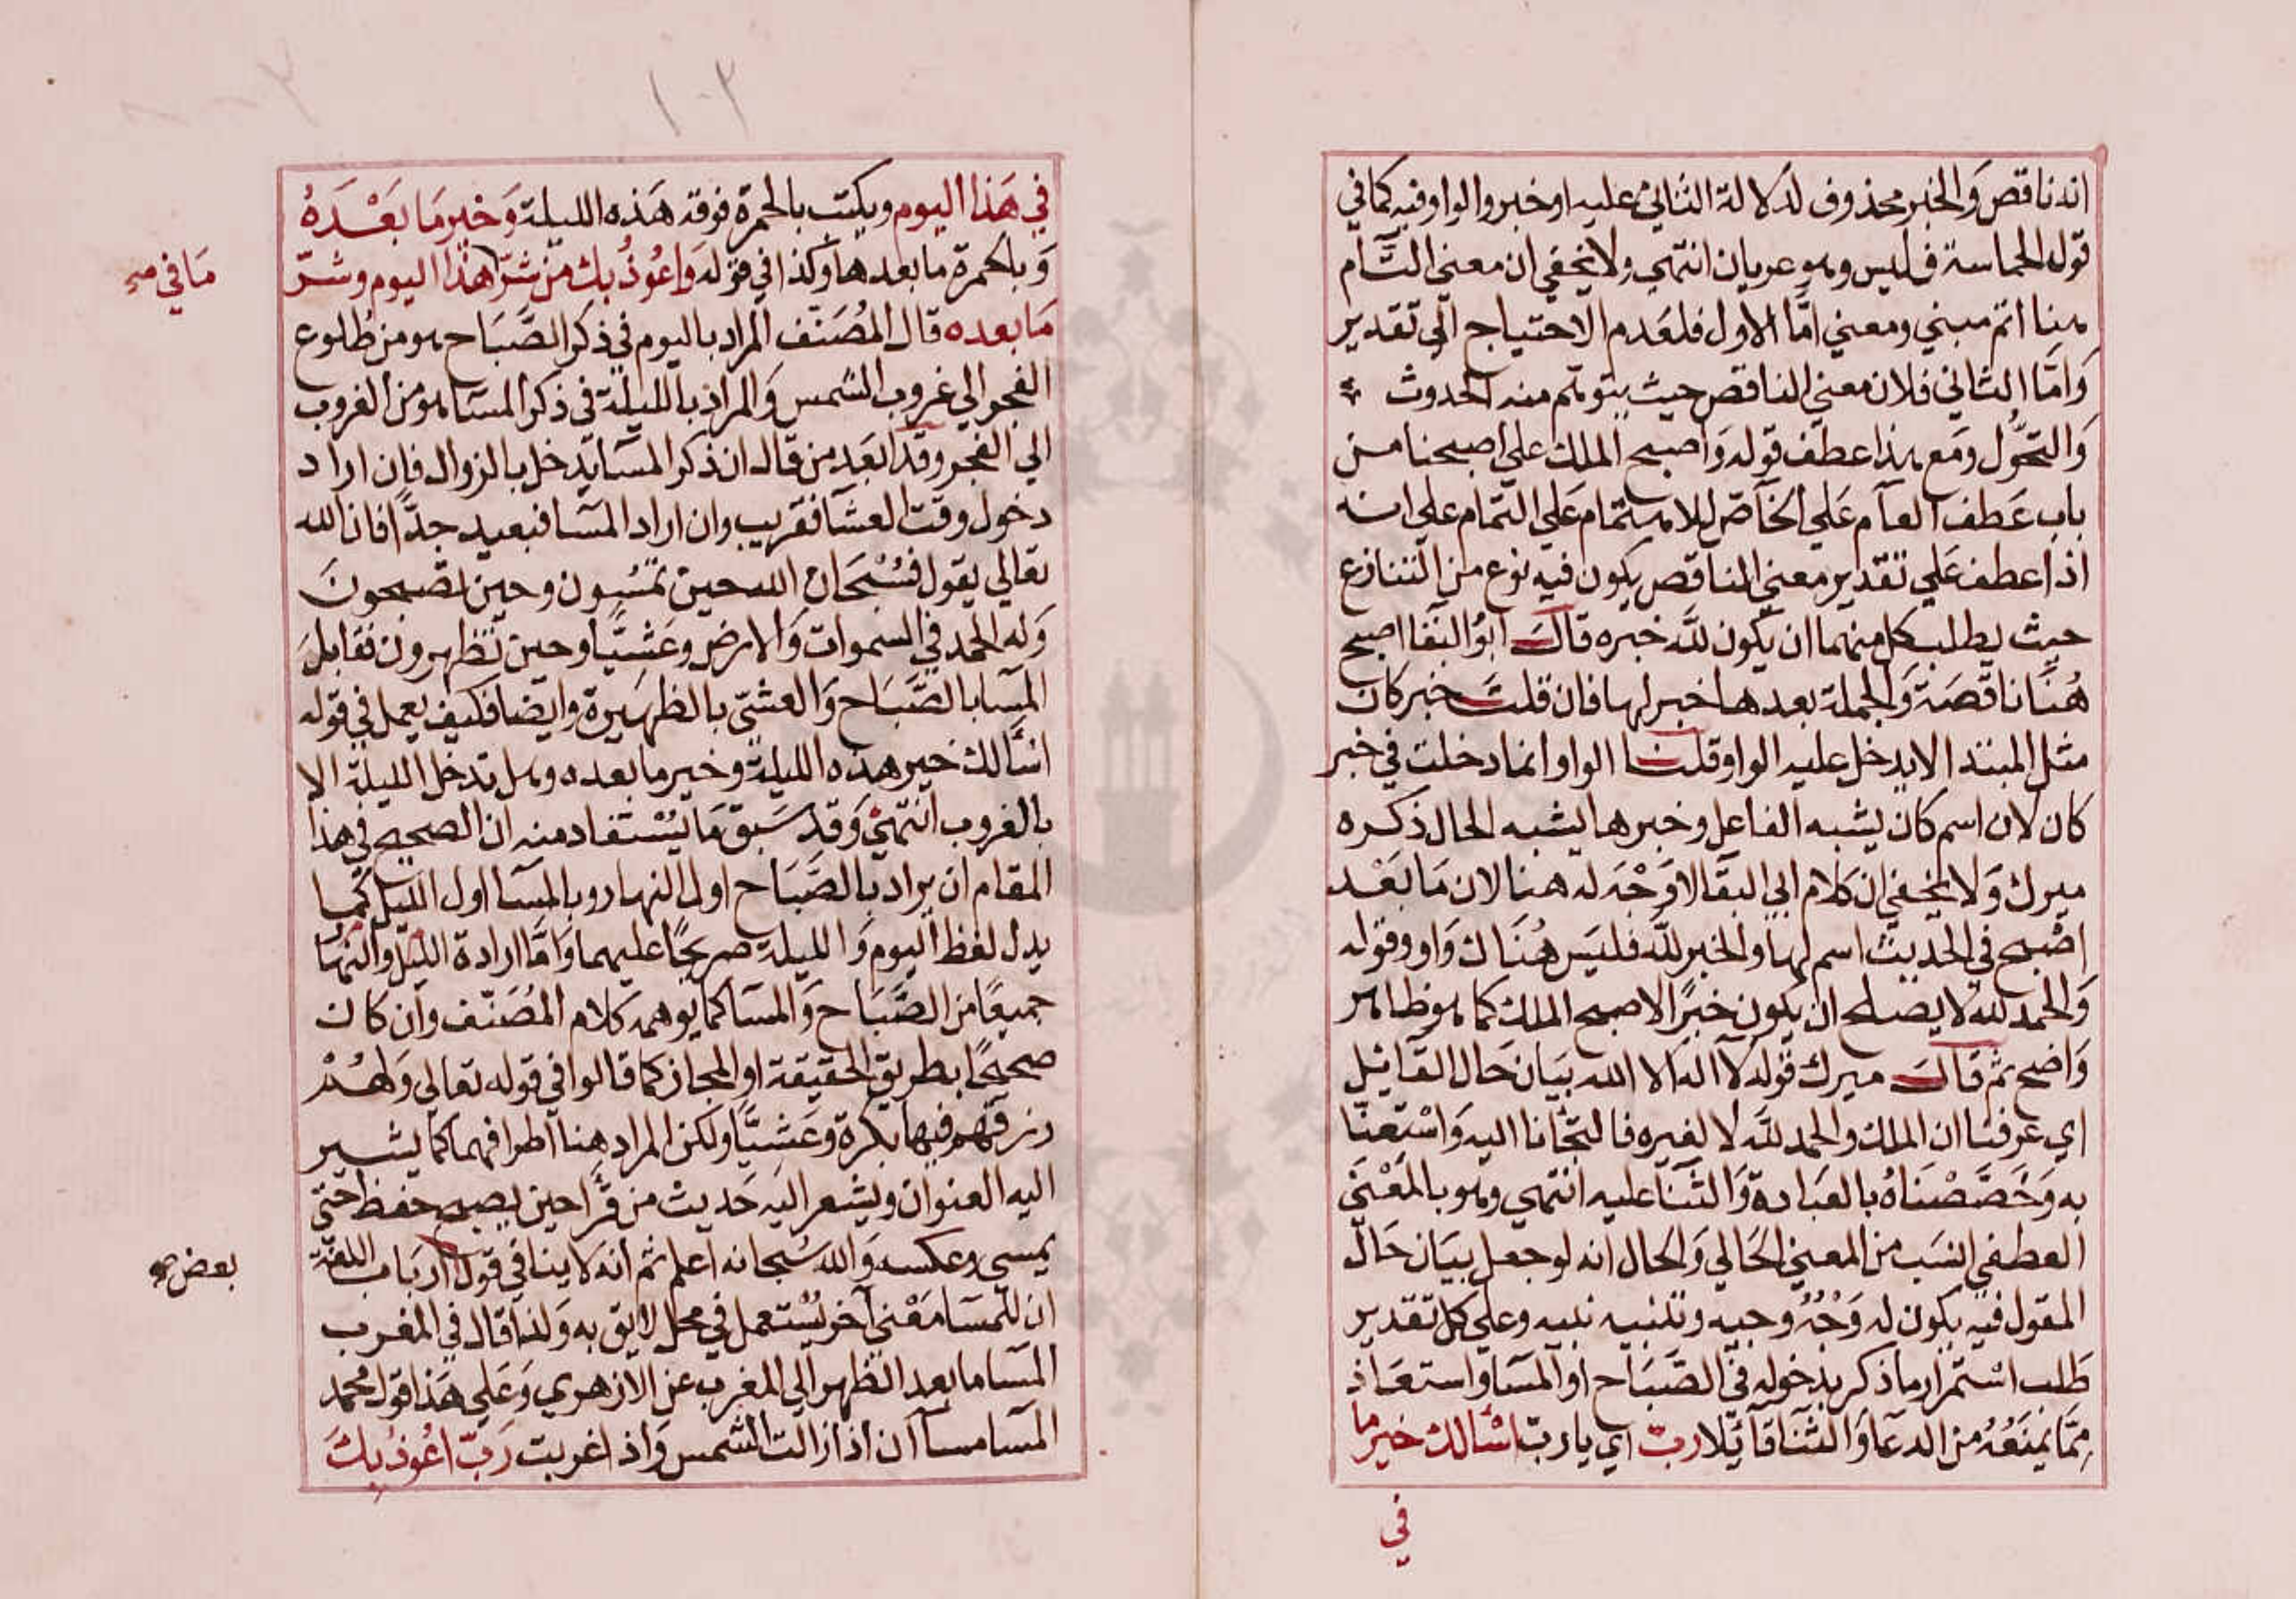 انه ناقص وَالخبر محذوف لدلالة الثاني عليه او خبر والواو فيه كما في
قول الحماسة فليس وهو عريان انتهي ولا يخفي ان معني التَّام
هنا اتم مبني ومعني امّا الاول فلعَدم الاحتياج الي تقدير
وَامّا الثاني فلان معني الناقص حيث يتوهم منه الحدوث
وَالتحَوُّل وَمَع هذا عطف قوله وَاصبح الملك علي اصبحنا من
باب عَطف العآم عَلي الخآصّ للاهتمام عَلي التمام علي انه
اذا عطف عَلي تقدير معني الناقص يكون فيه نوع من التنازع
حيث يطلب كل منهما ان يكون للَّه خبره قالَ ابوُ البقا اصبح
هُنَا ناقصَة وَالجملة بعدها خبر لها فان قلتَ خبر كان
مثل المبتدا لا يدخل عليه الواو قلنا الواو انما دخلت في خبر
كان لان اسم كان يشبه الفاعل وخبرها يشبه الحال ذكره
ميرك وَلا يخفي ان كلام ابي البقا لا وَجْهَ له هنا لان مَا بَعْد
اصْبح في الحديث اسم لها والخبر للَّه فليَس هُنَاك وَاو وقوله
وَالحمد للَّه لا يصلح ان يكون خبرًا لاصبح الملك كما هو ظاهر
وَاضح ثم قالَ ميرك قوله لا اله الا الله بيَان حَال القآئِل
اي عرفنا ان الملك والحمد للَّه لا لغيره فالتجأنا اليه وَاسْتعنَّا
به وَخَصَّصْنَاهُ بالعبَادة وَالثَّنا عليه انتهي وهو بالمَعْنَي
العطفي انسَب من المعني الحَالي وَالحال انه لو جعل بيَان حَال
المقول فيه يكون له وَجْهٌ وجيه وتنبيه نبيه وعلي كل تقدير
طَلب اسْتمرار ما ذكر بدخوله في الصَّبَاح او المسَا واستعَاذ
مِمَّا يمنَعُهُ من الدعَا وَالثنَا قآئلا ربّ اي يا ربّ اسْالك خير ما
في
في هَذا اليوم ويكتب بالحمرة فوقه هَذه الليلة وَخير مَا بَعْدَهُ
وَبالحمرة ما بعدها وَكذا في قوله وَاعُوذُ بك من شرّ هذا اليوم وشرّ
مَا في صح
مَا بعده قال المُصَنّف المراد باليوم في ذكر الصَّبَاح هو من طُلوع
الفجر الي غروب الشمس وَالمراد بالليلة في ذكر المسَا هو من الغروب
الي الفجر وقَد ابعَد من قال ان ذكر المسَا يدخل بالزوال فان اراد
دخول وقت العشَا فقريب وان اراد المسَا فبعيد جدًّا فان الله
تعالي يقول فسُبْحَان الله حين تمْسُون وحين تصبحونَ
وَله الحمد في السموات وَالارض وعَشيًّا وحين تظهرون فقابلَ
المسَا بالصَّبَاح وَالعشيّ بالظهيرة وايضا فكيف يعمل في قوله
اسْألك خير هذه الليلة وخير ما بعده وهل تدخل الليلة الا
بالغروب انتهيَ وَقد سَبق مَا يُسْتفاد منه ان الصحيح في هذا
المقام ان يراد بالصَّبَاح اول النهار وبالمسَا اول الليل كمَا
يدل لفظ اليوم وَالليلة صريحًا عليهما وَامَّا ارادة الليل والنهَار
جميعًا من الصَّبَاح وَالمسَا كما يوهمه كلام المُصَنّف وان كان
صحيحًا بطريق الحقيقة او المجاز كما قالوا في قوله تعالي وَلَهُمْ
رزقهم فيها بكرة وعَشيًّا ولكن المراد هنا اطرافهما كما يشير
اليه العنوان ويشعر اليه حَديث من قَرا حين يصبح حفظ حتي
يمسي وعكسه وَالله سُبحانه اعلم ثم انه لا ينافي قول ارباب اللغة
بعض صح
ان للمسَا مَعْني آخر يُسْتعمل في محل لايق به وَلذا قال في المغرب
المسَا ما بعد الظهر الي المغرب عن الازهري وَعَلي هَذا قول محمد
المسَا مسَاآن اذا زالت الشمس وَاذا غربت رَبّ اعُوذُ بِكَ